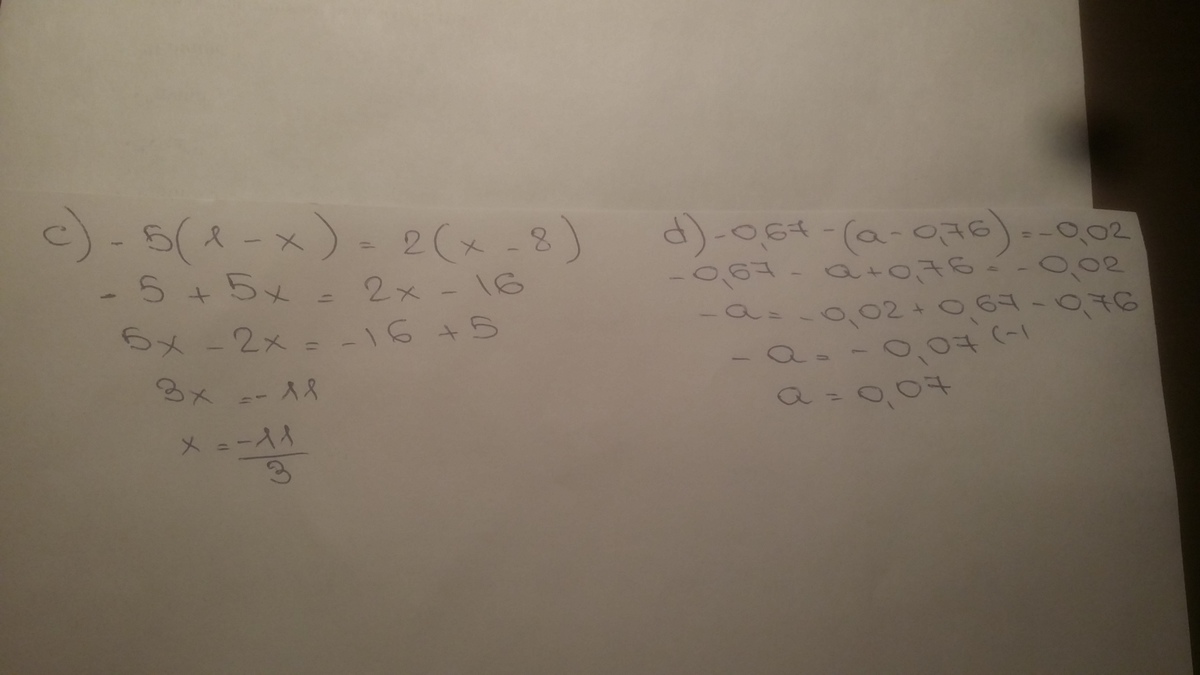 c) - 5(1 - x) = 2(x - 8)
- 5 + 5x = 2x - 16
5x - 2x = -16 + 5
3x = - 11
x = -11/3
d) -0,67 - (a - 0,76) = -0,02
-0,67 - a + 0,76 = -0,02
-a = -0,02 + 0,67 - 0,76
- a = - 0,07 (-1
a = 0,07